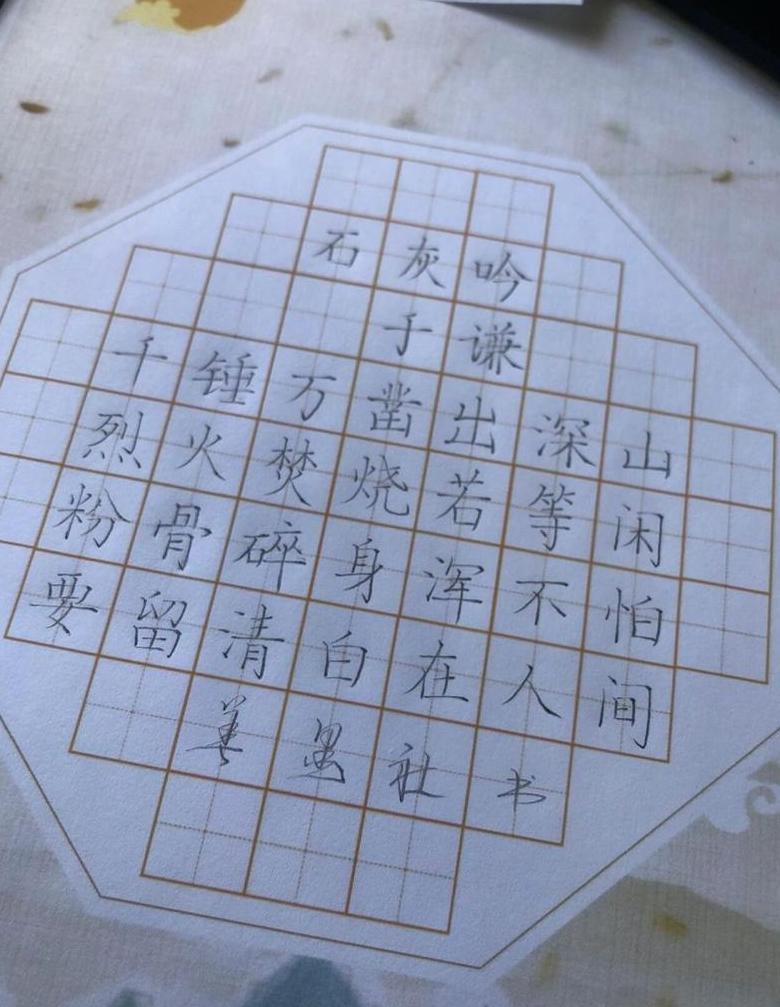 石灰吟
于谦
千锤万凿出深山
烈火焚烧若等闲
粉骨碎身浑不怕
要留清自在人间
墨社书